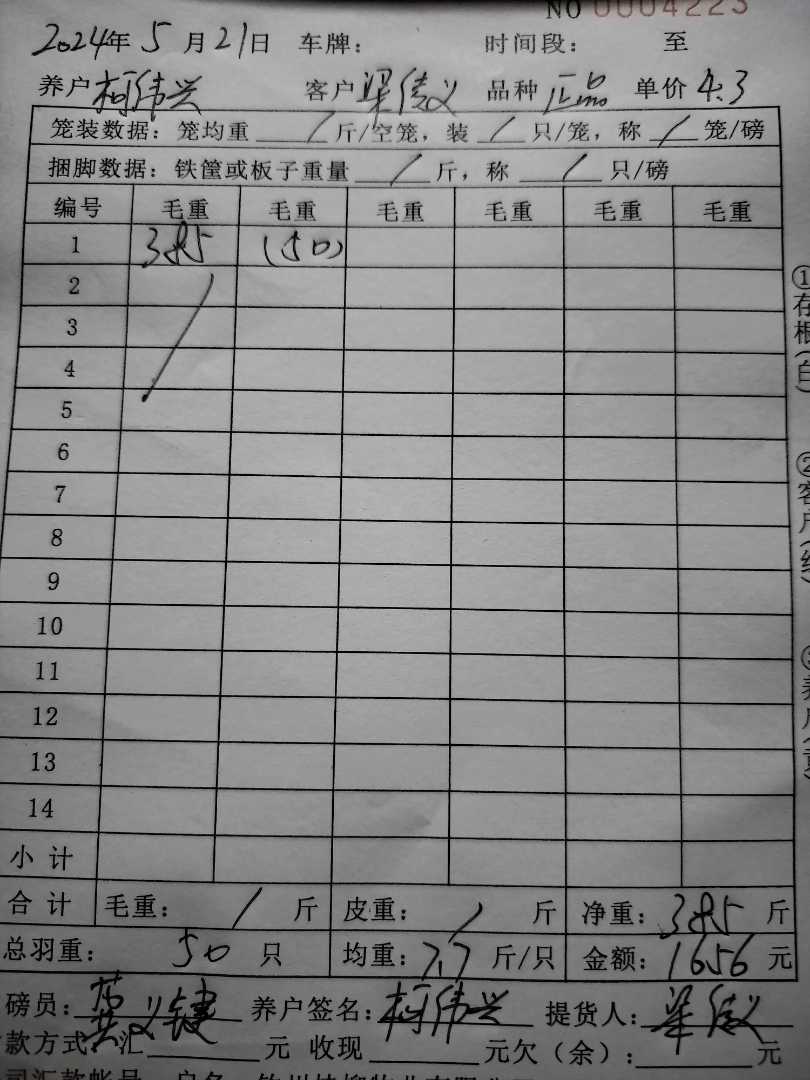 NO 0004223
2024年 5 月 21 日 车牌： 时间段： 至
养户 柯伟兴 客户 梁俊义 品种 正品 单价 4.3
笼装数据：笼均重 / 斤/空笼，装 / 只/笼，称 / 笼/磅
捆脚数据：铁筐或板子重量 / 斤，称 / 只/磅
编号 毛重 毛重 毛重 毛重 毛重 毛重
1 385 (50)
2
3
4
5
6
7
8
9
10
11
12
13
14
小计
合计 毛重： / 斤 皮重： / 斤 净重：385 斤
总羽重： 50 只 均重：7.7 斤/只 金额：1656 元
磅员： 义键 养户签名：柯伟兴 提货人：梁俊义
款方式：汇 元 收现 元欠（余）： 元
①存根（白）
②客户（红）